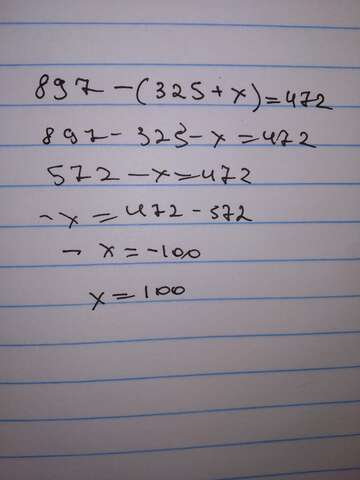 897 - (325 + x) = 472
897 - 325 - x = 472
572 - x = 472
- x = 472 - 572
- x = -100
x = 100